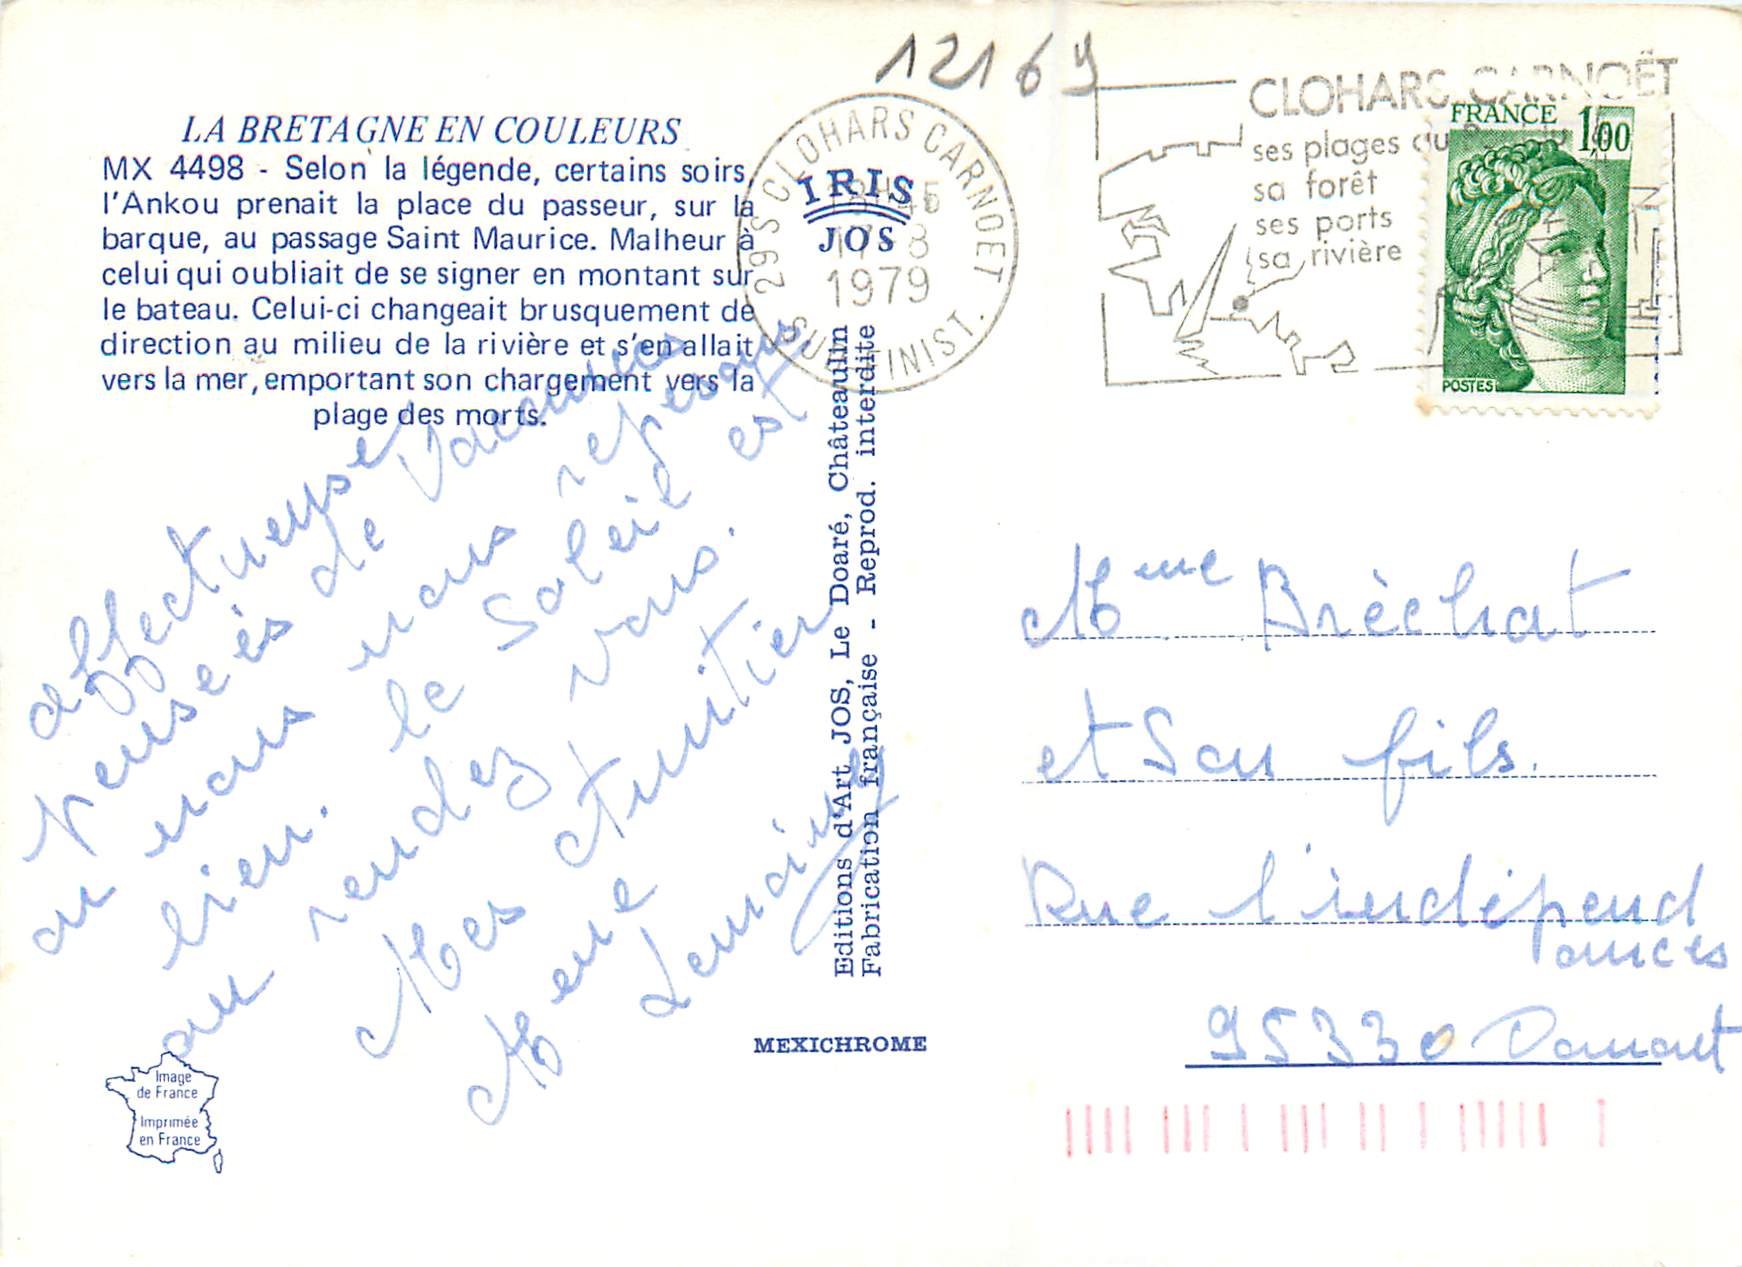 12169
LA BRETAGNE EN COULEURS
MX 4498 - Selon la légende, certains soirs,
l'Ankou prenait la place du passeur, sur la
barque, au passage Saint Maurice. Malheur à
celui qui oubliait de se signer en montant sur
le bateau. Celui-ci changeait brusquement de
direction au milieu de la rivière et s'en allait
vers la mer, emportant son chargement vers la
plage des morts.
IRIS
JOS
29 S CLOHARS CARNOET
SUD FINIST.
1979
CLOHARS CARNOËT
ses plages du
sa forêt
ses ports
sa rivière
FRANCE 1,00
POSTES
affectueuse
pensées de Vacances
ou nous nous reposons
bien. le Soleil est
au rendez vous.
Mes Amitier
Mme Lemoine
Editions d'Art JOS, Le Doaré, Châteaulin
Fabrication française - Reprod. interdite
Mme Bréchat
et Son fils.
Rue l'indépend
ances
95330 Domont
MEXICHROME
Image
de France
Imprimée
en France